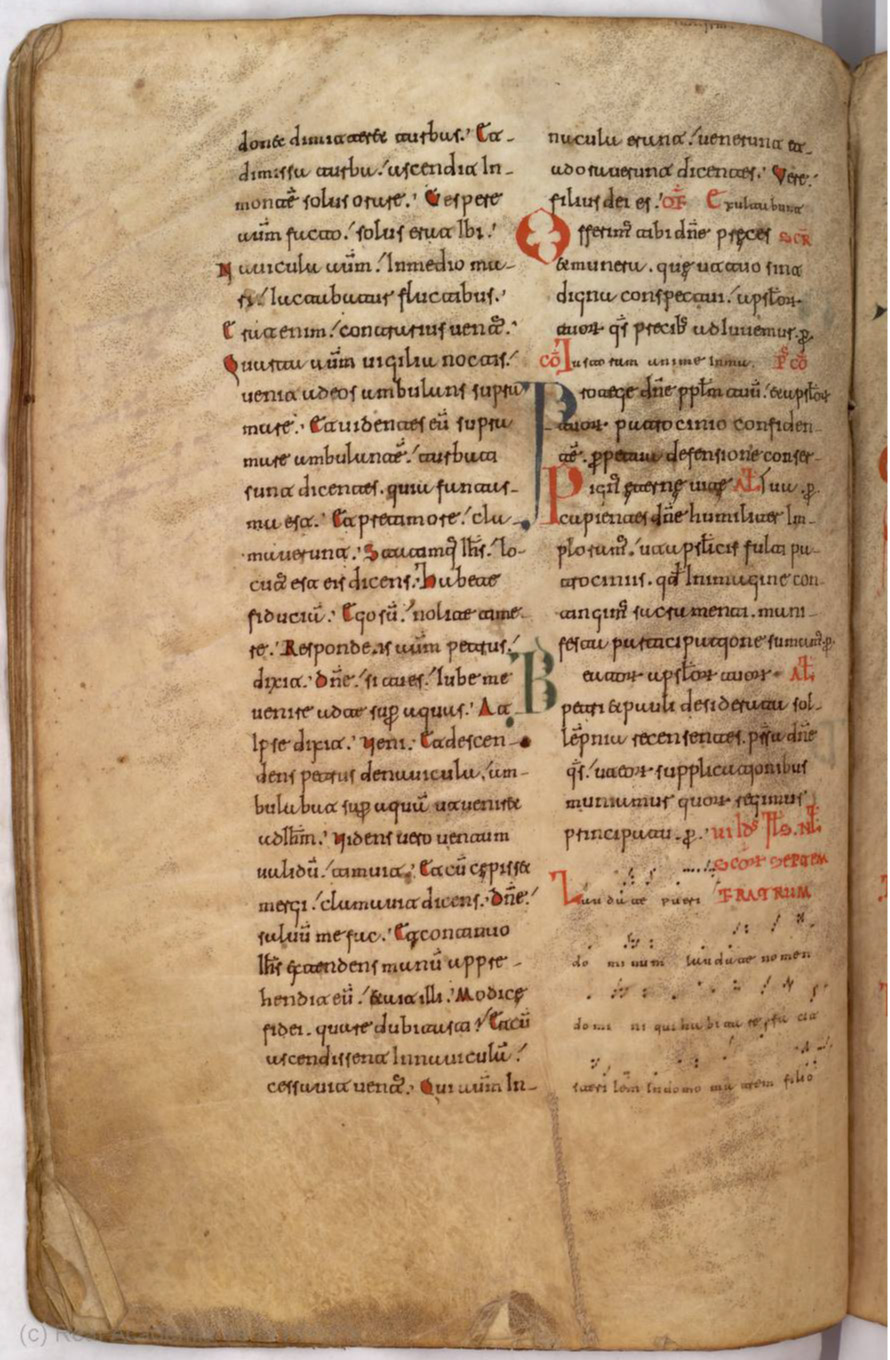 donec dimitteret turbas. Et
dimissa turba, ascendit in
montē solus orare. Vespere
autē facto, solus erat ibi.
Navicula autē, in medio ma-
ris, iactabatur fluctibus.
Erat enim, contrarius vent᷒.
Quarta autē vigilia noctis,
venit ad eos ambulans supra
mare. Et videntes eū supra
mare ambulantē, turbati
sunt dicentes. quia fantas-
ma est. Et pre timore, cla-
maverunt. Statimq; ihs̄, lo-
cut᷒ est eis dicens. habete
fiduciā. Ego sū, nolite time-
re. Respondens autē petrus,
dixit. dn̄e, si tu es, iube me
venire ad te sup̄ aquas. At
ipse dixit. veni. Et descen-
dens petrus de navicula, am-
bulabat sup̄ aquā ut veniret
ad ihm̄. videns vero ventum
validū, timuit. Et cū cępisset
mergi, clamavit dicens. dn̄e,
salvū me fac. Et continuo
ihs̄ extendens manū appre-
hendit eū, & ait illi. Modicę
fidei. quare dubitasti? Et cū
ascendissent in naviculā,
cessavit vent᷒. Qui autē in
navicula erant, venerunt et
adoraverunt dicentes. Vere
filius dei es. OF̄ Exultabunt
Offerim᷒ tibi dn̄e preces SCR̄
& munera. que ut tuo sint
digna conspectu, apl̄oꝝ
tuoꝝ qs̄ precib᷒ adiuvemur. p̄.
CŌ Iustorum anime in manu. P᷒ CŌ
Protege dn̄e pplm̄ tuū, & apl̄oꝝ
tuoꝝ patrocinio confiden-
tē. p̄petua defensione conser-
va. p̄. AL̄
Percipientes dn̄e humiliter im-
ploram᷒, ut apl̄icis fulti pa-
trociniis. qd̄ in imagine con-
tingim᷒ sacramenti. mani-
festa participatione sumam᷒. p̄.
Beatoꝝ apl̄oꝝ tuoꝝ AL̄
petri & pauli desideratā sol-
lēpnia recensentes. p̄sta dn̄e
qs̄, ut eoꝝ supplicationibus
muniamur quoꝝ regimur
principatu. p̄. VI ID᷒ IL̄. NL̄
SCŌꝜ SEPTEM
Laudate pueri FRATRUM
dominum laudate nomen
domini qui habitare facit
sterilem in domo matrem filio